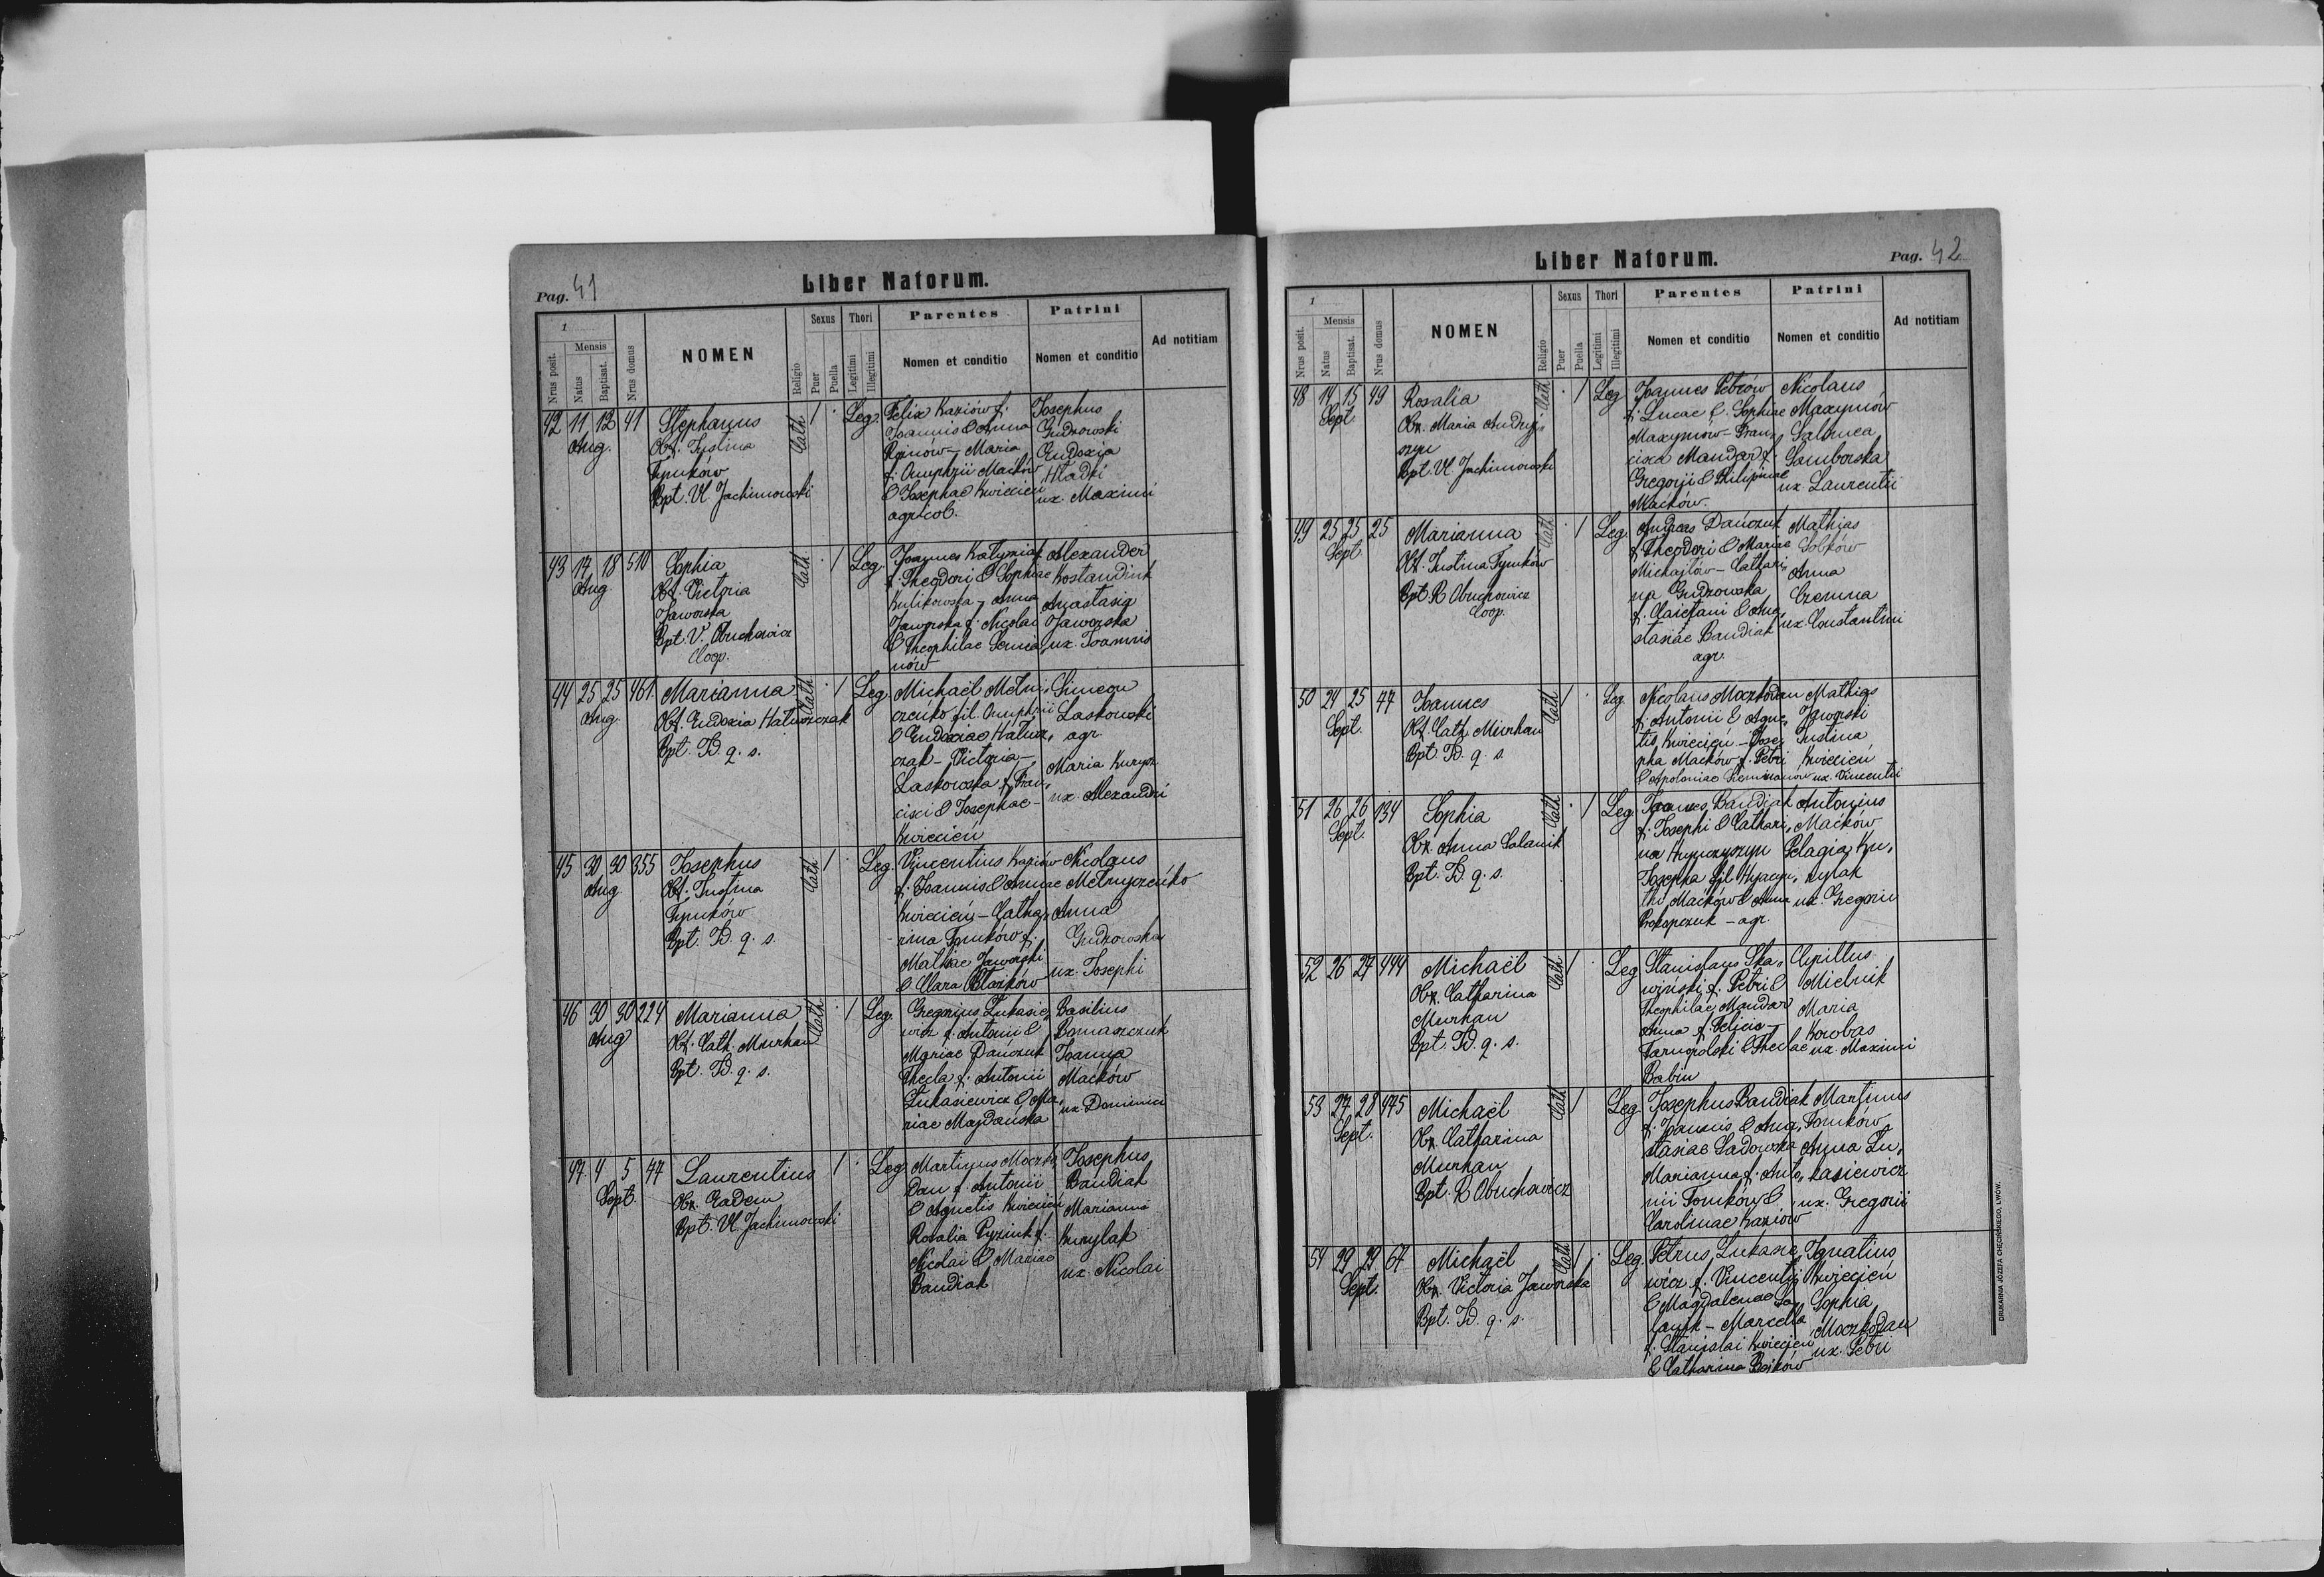 Pag. 41
Liber Natorum.
1
Mensis
Nrus posit.
Natus
Baptisat.
Nrus domus
NOMEN
Religio
Sexus
Puer
Puella
Thori
Legitimi
Illegitimi
Parentes
Nomen et conditio
Patrini
Nomen et conditio
Ad notitiam
42 11 12 41
Aug.
Stephanus
Obst. Justina
Tymków
Bpt. Vl. Jachimowski
Cath.
1
Leg.
Felix Kaziów f.
Joannis & Anna
Maria
f. Onuphrii Maćków
& Josephae Kwiecień
agricol.
Josephus
Gudzowski
Eudoxia
Hładki
ux. Maximi
43 17 18 510
Aug
Sophia
Obst. Victoria
Jaworska
Bpt. V. Obuchowicz
Coop.
Cath
1
Leg.
Joannes Kałyniak
f. Theodori & Sophiae
Kulikowska - Anna
Jaworska f. Nicolai
& Theophilae
nów
Alexander
Kostandiuk
Anastasia
Jaworska
ux. Joannis
44 25 25 461
Aug.
Marianna
Obst. Eudoxia Haluszczak
Bpt. Id. q. s.
Cath
1
Leg.
Michaël Melny,
czeńko fil. Onuphrii
& Eudoxiae Halusz,
czak - Victoria -
Laskowska f. Fran,
cisci & Josephae -
Kwiecień
Simeon
Laskowski
agr
Maria Kurysz
ux. Alexandri
45 30 30 355
Aug.
Josephus
Obst. Justina
Tymków
Bpt. Id. q. s.
Cath
1
Leg.
Vincentius Kaziów
f. Joannis & Annae
Kwiecień - Catha,
rina Tymków f.
Mathiae Jaworski
& Clara
Nicolaus
Melnyczeńko
Anna
Gudzowska
ux. Josephi
46 30 30 224
Aug
Marianna
Obst. Cath. Murhan
Bpt. Id. q. s.
Cath
1
Leg.
Gregorius Łukasie,
wicz f. Antonii &
Mariae Dańczuk
Thecla f. Antonii
Łukasiewicz & Ma,
riae Majdańska
Basilius
Romaszczuk
Joanna
Maćków
ux. Dominici
47 4 5 47
Sept.
Laurentius
Obst. Eadem
Bpt. Vl. Jachimowski
1
Leg.
Martinus Moczko,
dan f. Antonii
& Agnetis Kwiecień
Rosalia Pyziuk f.
Nicolai & Mariae
Bandiak
Josephus
Bandiak
Marianna
Kurylak
ux. Nicolai
Liber Natorum.
Pag. 42
1
Mensis
Nrus posit.
Natus
Baptisat.
Nrus domus
NOMEN
Religio
Sexus
Puer
Puella
Thori
Legitimi
Illegitimi
Parentes
Nomen et conditio
Patrini
Nomen et conditio
Ad notitiam
48 14 15 49
Sept
Rosalia
Obst. Maria Andryj,
szyn
Bpt. Vl. Jachimowski
Cath
1
Leg
Joannes Petrów
f. Lucae & Sophiae
Maxymów - Fran,
cisca Mandar f.
Gregorji & Philipinae
Maćków.
Nicolaus
Maxymów
Salomea
Samborska
ux. Laurentii
49 25 25 25
Sept.
Marianna
Obst. Justina Tymków
Bpt. R Obuchowicz
Coop.
Cath
1
Leg.
Andreas Dańczuk
f. Theodori & Mariae
Michajlów - Cathari,
na Gudzowska
f. Caietani & Ana,
stasiae Bandiak
agr.
Mathias
Sobków
Anna
Czemna
ux. Constantini
50 24 25 77
Sept.
Joannes
Obst. Cath Murhan
Bpt. Id. q. s
Cath
1
Leg
Nicolaus Moczkodan
f. Antonii & Agne,
tis Kwiecień - Jose,
pha Maćków f. Petri
& Apoloniae
Mathias
Jaworski
Justina
Kwiecień
ux. Vincentii
51 26 26 134
Sept.
Sophia
Obst. Anna Salanik
Bpt. Id. q. s.
Cath
1
Leg.
Joannes Bandiak
f. Josephi & Cathari,
na Hryńczyszyn
Josepha fil Hyacyn,
thi Maćków & Anna
Prokopczuk - agr.
Antonius
Maćków
Pelagia Ku,
rylak
ux. Gregorii
52 26 27 444
Michaël
Obst. Catharina
Murhan
Bpt. Id. q. s.
Cath
1
Leg
Stanislaus Ska,
wiński f. Petri &
Theophilae Mandar
Anna f. Felicis -
Tarnopolski & Theclae
Babin
Cyrillus
Mielnik
Maria
Korobas
ux. Maximi
53 27 28 175
Sept.
Michaël
Obst. Catharina
Murhan
Bpt. R Obuchowicz
Cath
1
Leg
Josephus Bandiak
f. Joannis & Ana,
stasiae Sadowska
Marianna f. Anto,
nii Tomków &
Carolinae Kaziów
Martinus
Tomków
Anna Łu,
kasiewicz
ux. Gregorii
54 29 29 67
Sept.
Michaël
Obst. Victoria Jaworska
Bpt. Id. q. s.
Cath
1
Leg.
Petrus Łukasie,
wicz f. Vincentii
& Magdalenae Sa,
lanik - Marcella
f. Stanislai Kwiecień
& Catharina Bojków
Ignatius
Kwiecień
Sophia
Moczkodan
ux. Petri
DRUKARNIA JÓZEFA CHĘCIŃSKIEGO, LWÓW.